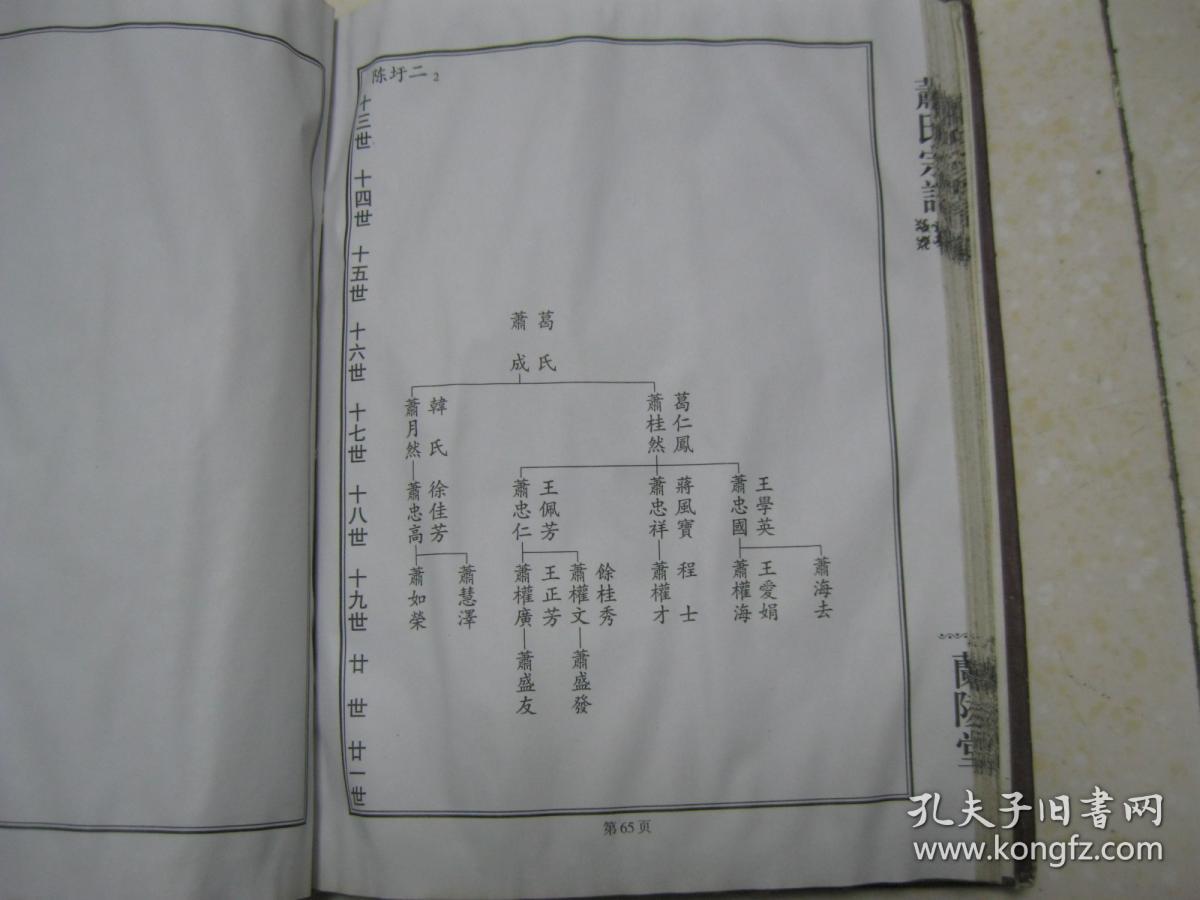 陈圩二 2
十三世
十四世
十五世
十六世
十七世
十八世
十九世
廿世
廿一世
蕭成
葛氏
蕭月然
韓氏
蕭桂然
葛仁鳳
蕭忠高
徐佳芳
蕭忠仁
王佩芳
蕭忠祥
蔣風寶
蕭忠國
王學英
蕭如榮
蕭慧澤
蕭權廣
王正芳
蕭權文
餘桂秀
蕭權才
程士
蕭權海
王愛娟
蕭海去
蕭盛友
蕭盛發
第65页
蕭氏宗譜
蘭陵堂
孔夫子旧书网
www.kongfz.com